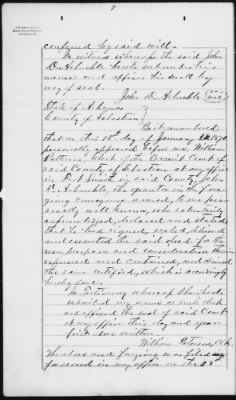 7
confered by said will.
In witness whereof the said John
D. Arbuckle hereto subscribes his
name and affixes his seal by
way of seal.
John D. Arbuckle seal
State of Arkansas
County of Sebastian
Be it remembered
that on this 18th day of January 1870
personally appeared before me William
Patterson Clerk of the Circuit Court of
said County of Sebastian at my office
in Fort Smith of said County John
D. Arbuckle, the grantor in the fore
going conveyance named, to me pers
onally well known, who
declared and stated
that he had signed, sealed delivered
and executed the said deed for the
uses purposes and consideration therein
expressed and contained, and desired
the same certified, which is accordingly
hereby done.
In testimony whereof I have hereto
my name as such clerk
and affixed the seal of said Court
at my office this day and year
first above written
William Patterson, Clk
The above and foregoing was filed
for record in my office on the